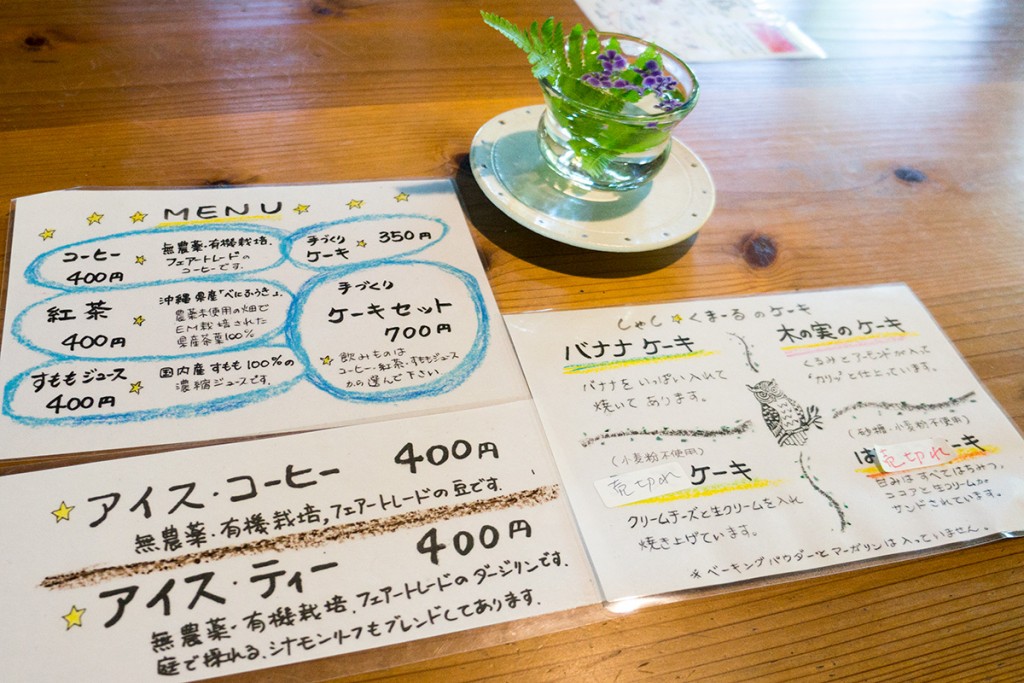 MENU
コーヒー
400円
無農薬・有機栽培.
フェアートレードの
コーヒーです。
手づくり
ケーキ
350円
紅茶
400円
沖縄県産「べにふうき」.
農薬未使用の畑で
EM栽培された
県産茶葉100%
手づくり
ケーキセット
700円
飲みものは
コーヒー・紅茶・すももジュース
から選んで下さい
すももジュース
400円
国内産すもも100%の
濃縮ジュースです。
アイス・コーヒー 400円
無農薬・有機栽培,フェアートレードの豆です.
アイス・ティー 400円
無農薬・有機栽培.フェアートレードのダージリンです.
庭で採れる.シナモンリーフもブレンドしてあります.
しゃし くまーる のケーキ
バナナケーキ
バナナをいっぱい入れて
焼いてあります。
(小麦粉不使用)
木の実のケーキ
くるみとアーモンドが入って
"カリッ"と仕上ています。
(砂糖・小麦粉不使用)
売切れ ケーキ
クリームチーズと生クリームを入れ
焼き上げています。
は 売切れ ーキ
甘みはすべてはちみつ,
ココアと生クリームが
サンドされています。
※ベーキングパウダーとマーガリンは入っていません。